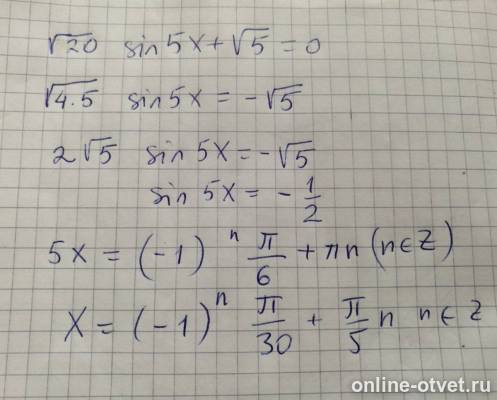 √20 sin5x + √5 = 0
√4·5 sin5x = -√5
2√5 sin 5x = -√5
sin 5x = - 1/2
5x = (-1)ⁿ π/6 + πn (n∈Z)
x = (-1)ⁿ π/30 + π/5 n n∈z
online-otvet.ru